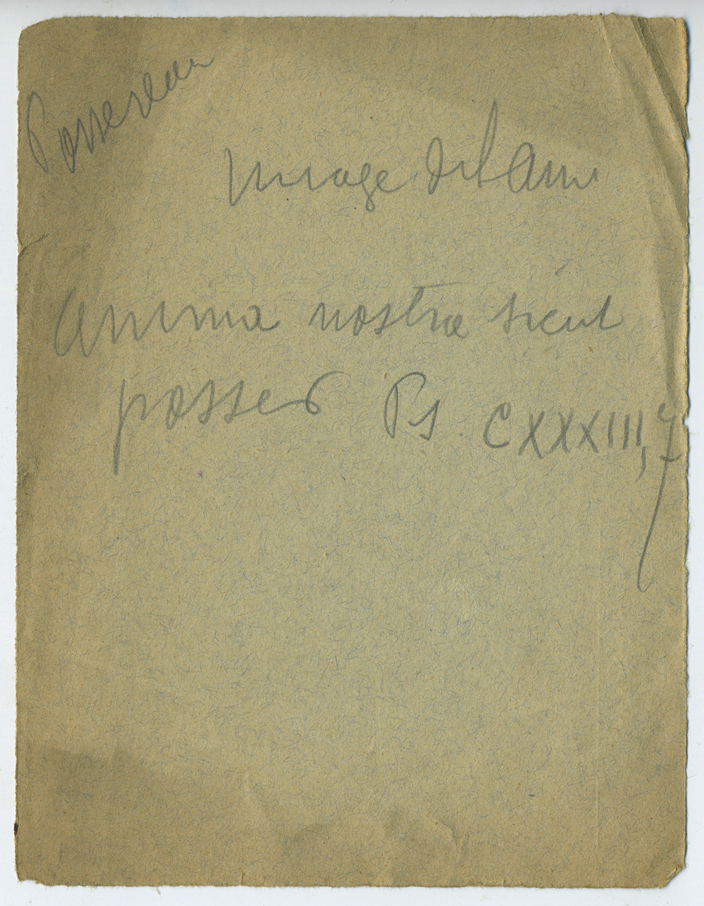 Passereau
image de l'ame
anima nostra sicut
passer Ps CXXXIII,7